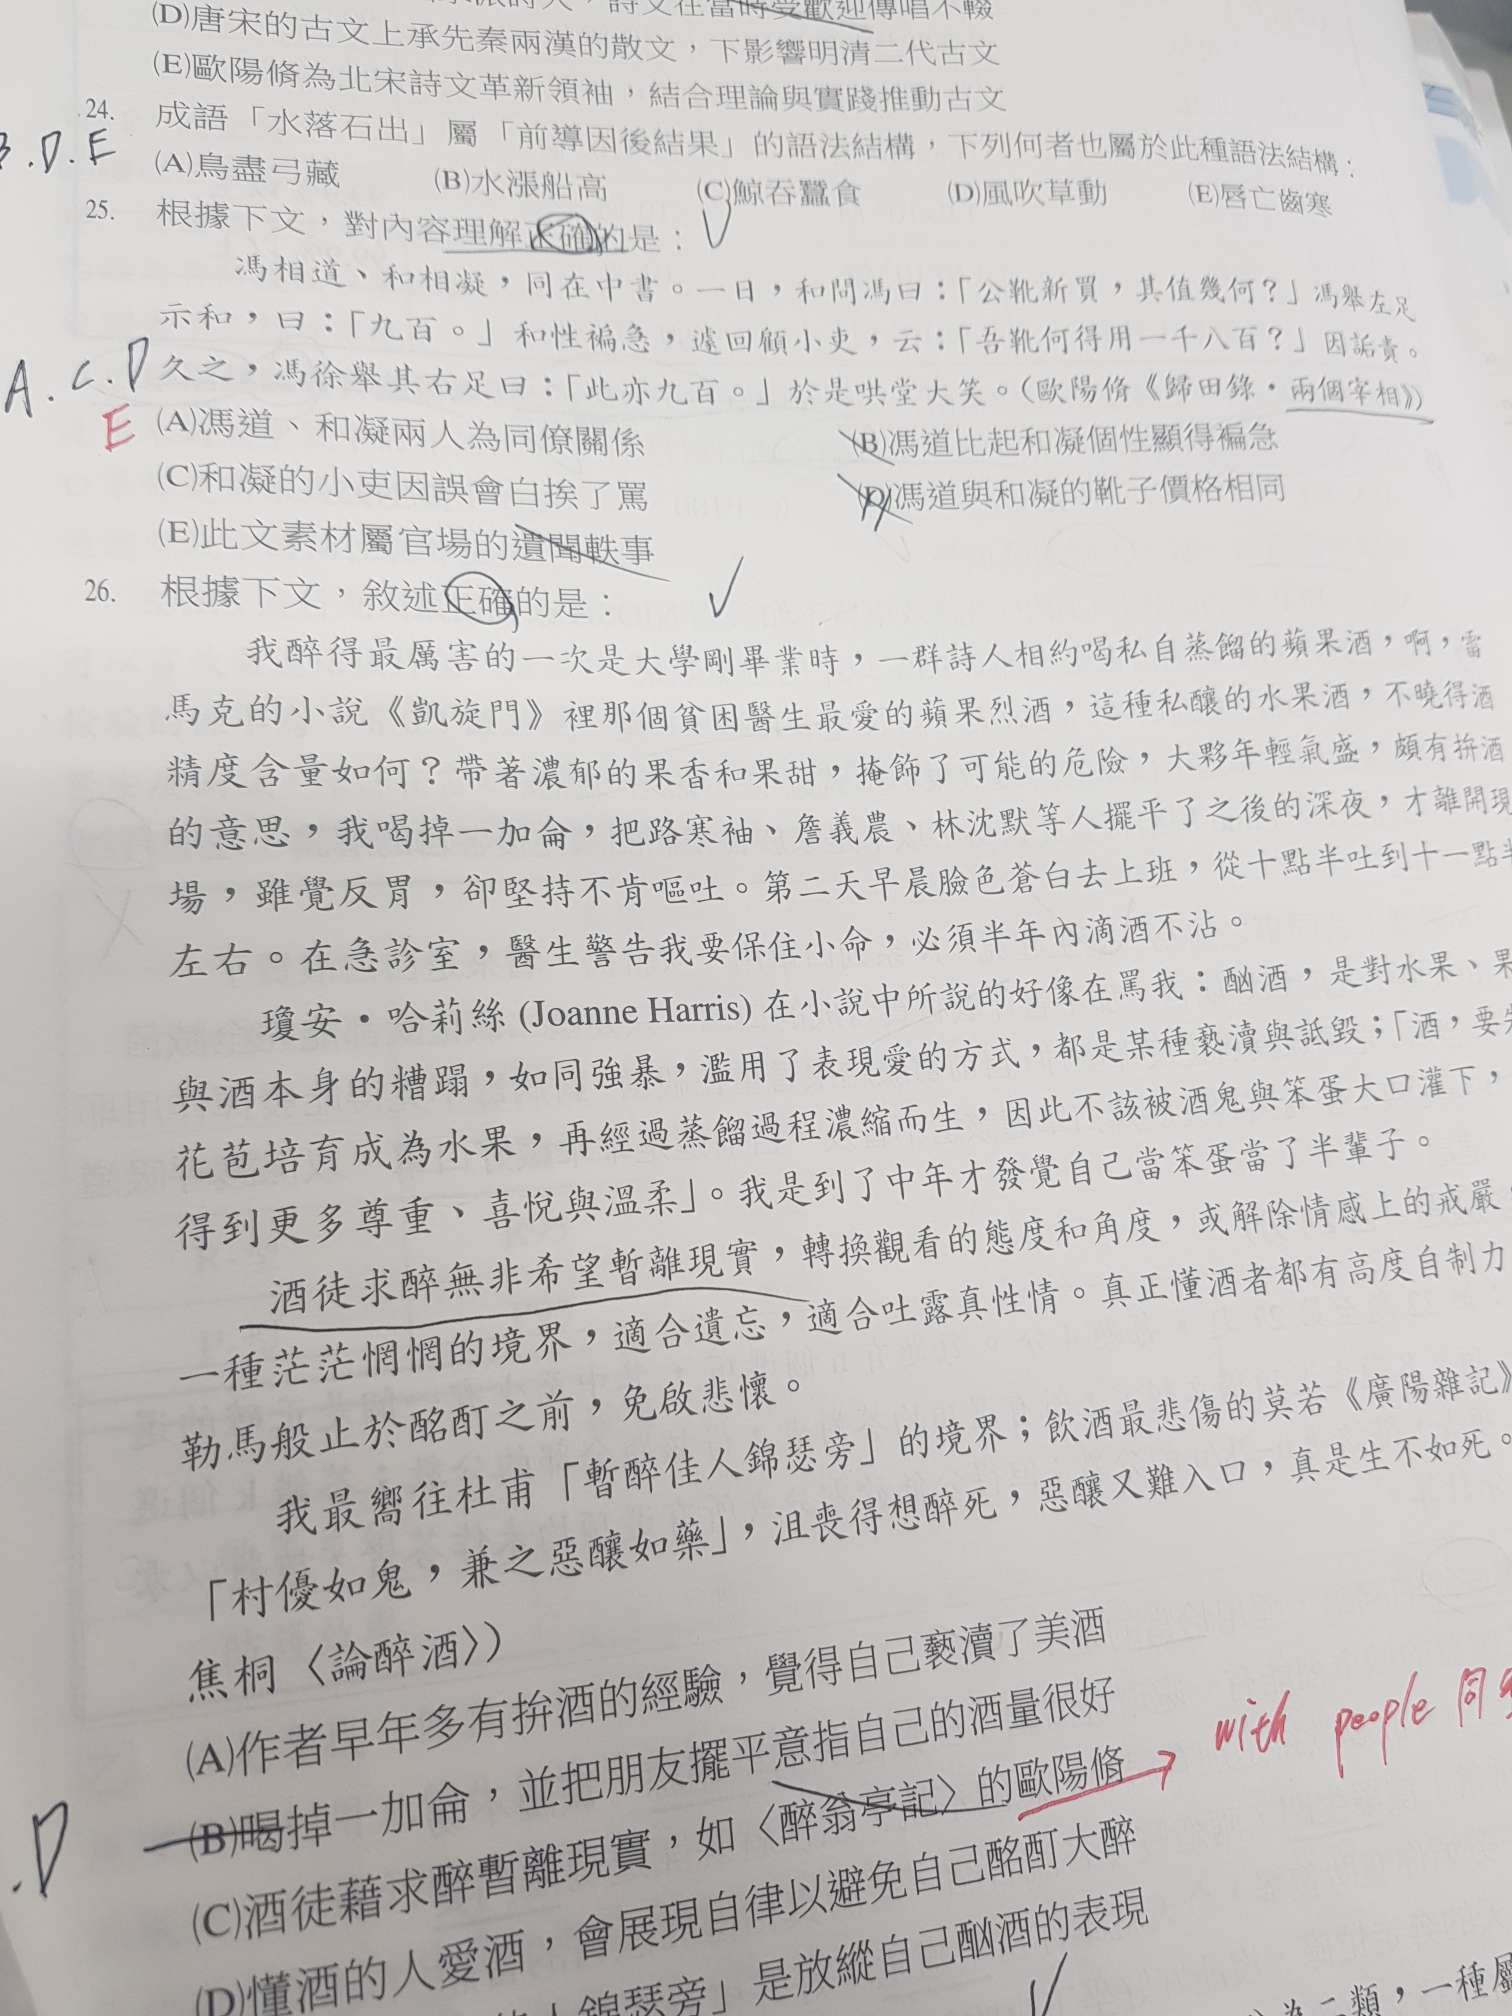 詩文在當時受歡迎傳唱不輟
(D)唐宋的古文上承先秦兩漢的散文，下影響明清二代古文
(E)歐陽脩為北宋詩文革新領袖，結合理論與實踐推動古文
24. 成語「水落石出」屬「前導因後結果」的語法結構，下列何者也屬於此種語法結構：
B.D.E
(A)鳥盡弓藏 (B)水漲船高 (C)鯨吞蠶食 (D)風吹草動 (E)唇亡齒寒
25. 根據下文，對內容理解正確的是：
馮相道、和相凝，同在中書。一日，和問馮曰：「公靴新買，其值幾何？」馮舉左足
示和，曰：「九百。」和性褊急，遽回顧小吏，云：「吾靴何得用一千八百？」因詬責。
久之，馮徐舉其右足曰：「此亦九百。」於是哄堂大笑。（歐陽脩《歸田錄．兩個宰相》）
A.C.D
E
(A)馮道、和凝兩人為同僚關係 (B)馮道比起和凝個性顯得褊急
(C)和凝的小吏因誤會白挨了罵 (D)馮道與和凝的靴子價格相同
(E)此文素材屬官場的遺聞軼事
26. 根據下文，敘述正確的是：
我醉得最厲害的一次是大學剛畢業時，一群詩人相約喝私自蒸餾的蘋果酒，啊，雷
馬克的小說《凱旋門》裡那個貧困醫生最愛的蘋果烈酒，這種私釀的水果酒，不曉得酒
精度含量如何？帶著濃郁的果香和果甜，掩飾了可能的危險，大夥年輕氣盛，頗有拚酒
的意思，我喝掉一加侖，把路寒袖、詹義農、林沈默等人擺平了之後的深夜，才離開現
場，雖覺反胃，卻堅持不肯嘔吐。第二天早晨臉色蒼白去上班，從十點半吐到十一點半
左右。在急診室，醫生警告我要保住小命，必須半年內滴酒不沾。
瓊安．哈莉絲 (Joanne Harris) 在小說中所說的好像在罵我：酗酒，是對水果、果
與酒本身的糟蹋，如同強暴，濫用了表現愛的方式，都是某種褻瀆與詆毀；「酒，要先
花苞培育成為水果，再經過蒸餾過程濃縮而生，因此不該被酒鬼與笨蛋大口灌下，
得到更多尊重、喜悅與溫柔」。我是到了中年才發覺自己當笨蛋當了半輩子。
酒徒求醉無非希望暫離現實，轉換觀看的態度和角度，或解除情感上的戒嚴
一種茫茫惘惘的境界，適合遺忘，適合吐露真性情。真正懂酒者都有高度自制力
勒馬般止於酩酊之前，免啟悲懷。
我最嚮往杜甫「暫醉佳人錦瑟旁」的境界；飲酒最悲傷的莫若《廣陽雜記》
「村優如鬼，兼之惡釀如藥」，沮喪得想醉死，惡釀又難入口，真是生不如死。
焦桐〈論醉酒〉）
(A)作者早年多有拚酒的經驗，覺得自己褻瀆了美酒
(B)喝掉一加侖，並把朋友擺平意指自己的酒量很好
(C)酒徒藉求醉暫離現實，如〈醉翁亭記〉的歐陽脩
with people 同
.D
(D)懂酒的人愛酒，會展現自律以避免自己酩酊大醉
人錦瑟旁」是放縱自己酗酒的表現
二類，一種屬